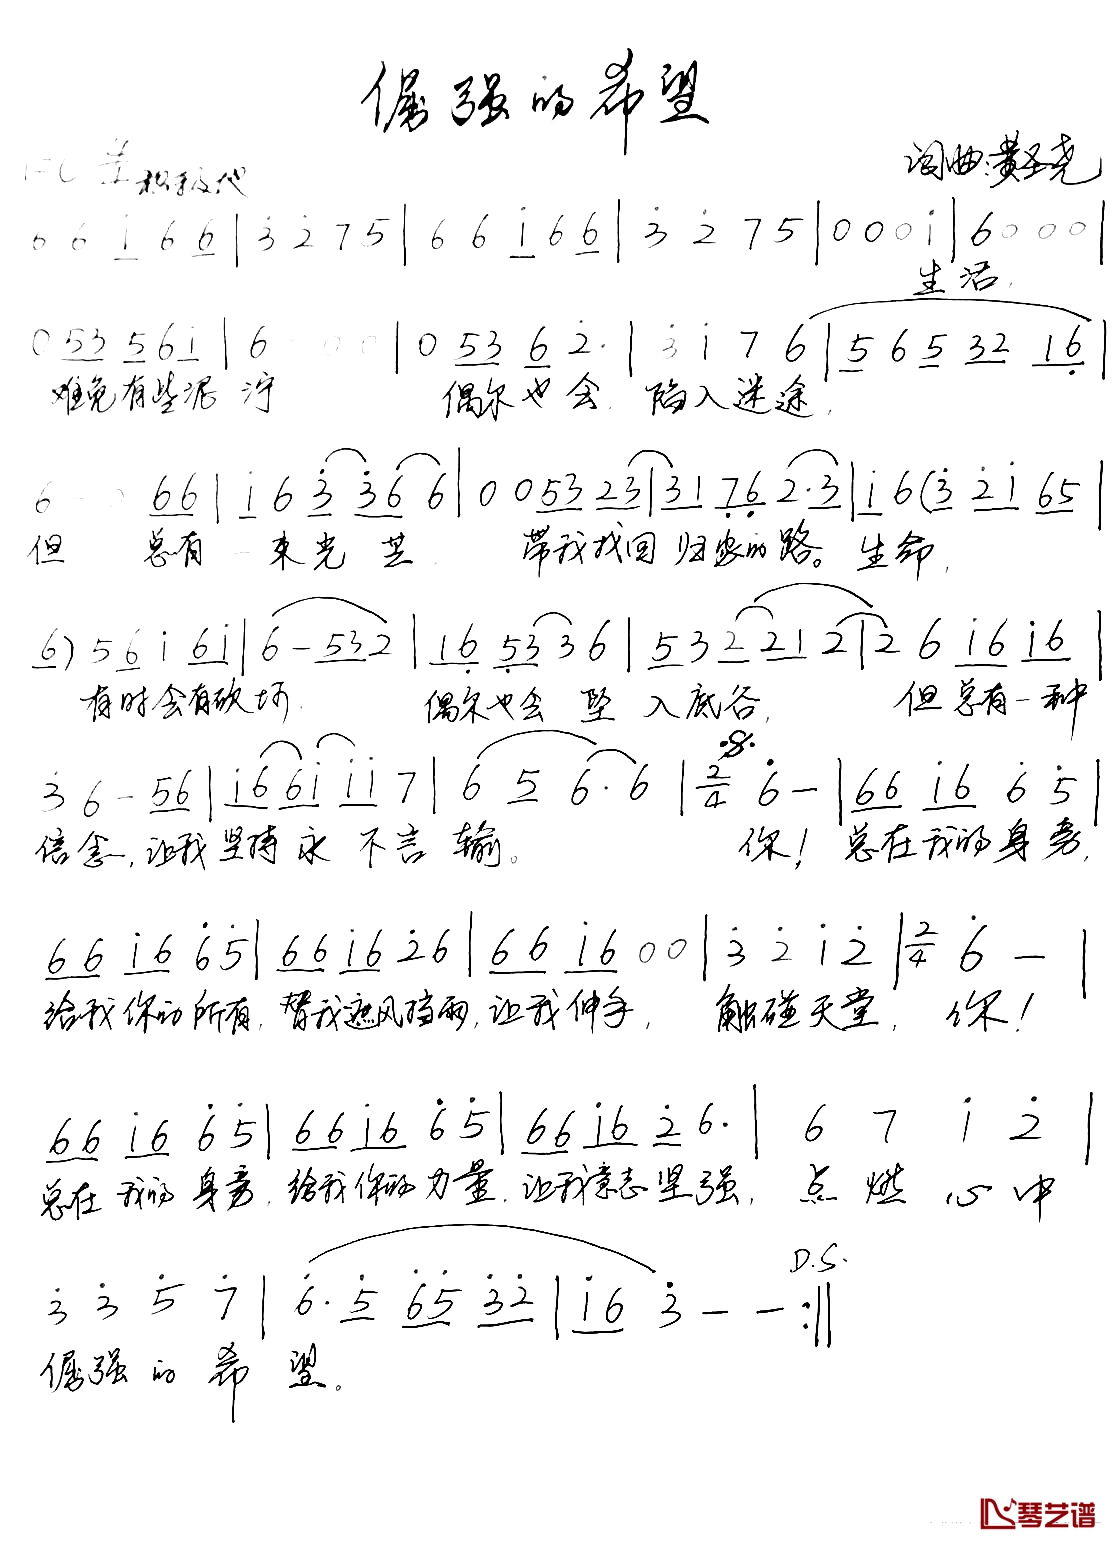 倔强的希望
词曲:黄圣尧
6 6 i 6 6 | 3 2 7 5 | 6 6 i 6 6 | 3 2 7 5 | 0 0 0 i | 6 0 0 0 |
生活,
0 53 5 6 i | 6 0 0 | 0 53 6 2· | 3 i 7 6 | 5 6 5 32 16 |
难免有些泥泞 偶尔也会 陷入迷途,
6 0 66 | i 6 3 36 6 | 0 0 53 23 | 31 76 2·3 | i 6 (3 2i 65 |
但 总有一束光芒 带我找回归家的路。生命,
6) 5 6 i 6i | 6 - 532 | 16 53 3 6 | 53 2 21 2 | 2 6 i6 i6 |
有时会有砍坷 偶尔也会 坠入底谷, 但总有一种
3 6 - 56 | i6 6i ii 7 | 6 5 6· 6 | 2/4 6 - | 66 i6 6 5 |
信念,让我坚持永不言输。 你!总在我的身旁,
66 i6 65 | 66 i6 26 | 66 i6 00 | 3 2 i 2 | 2/4 6 - |
给我你的所有,替我遮风挡雨,让我伸手, 触碰天堂, 你!
66 i6 65 | 66 i6 65 | 66 i6 2 6· | 6 7 i 2 |
总在我的身旁,给我你的力量,让我意志坚强,点燃心中
D.S.
3 3 5 7 | 6· 5 65 32 | i6 3 - - :||
倔强的希望。
琴艺谱